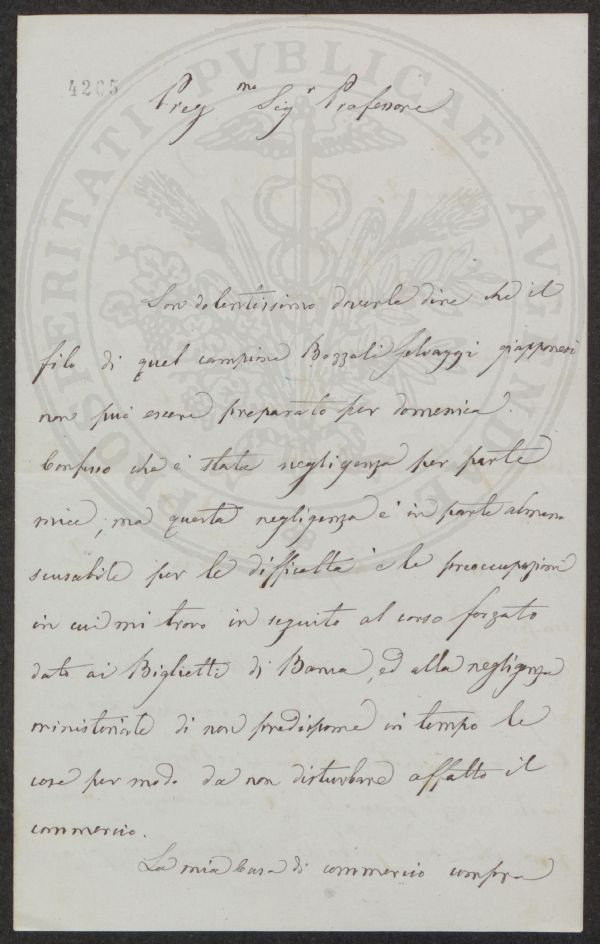 4205
Preg.mo Sig.r Professore
Son dolentissimo doverle dire che il
filo di quel campione Bozzoli selvaggi giapponesi
non può essere preparato per domenica.
Confesso che è stata negligenza per parte
mia; ma questa negligenza è in parte almeno
scusabile per le difficoltà e le preoccupazioni
in cui mi trovo in seguito al corso forzato
dato ai Biglietti di Banca, ed alla negligenza
ministeriale di non predisporre in tempo le
cose per modo da non disturbare affatto il
commercio.
La mia Casa di commercio compra
PROSPERITATI PVBLICAE AVGENDAE